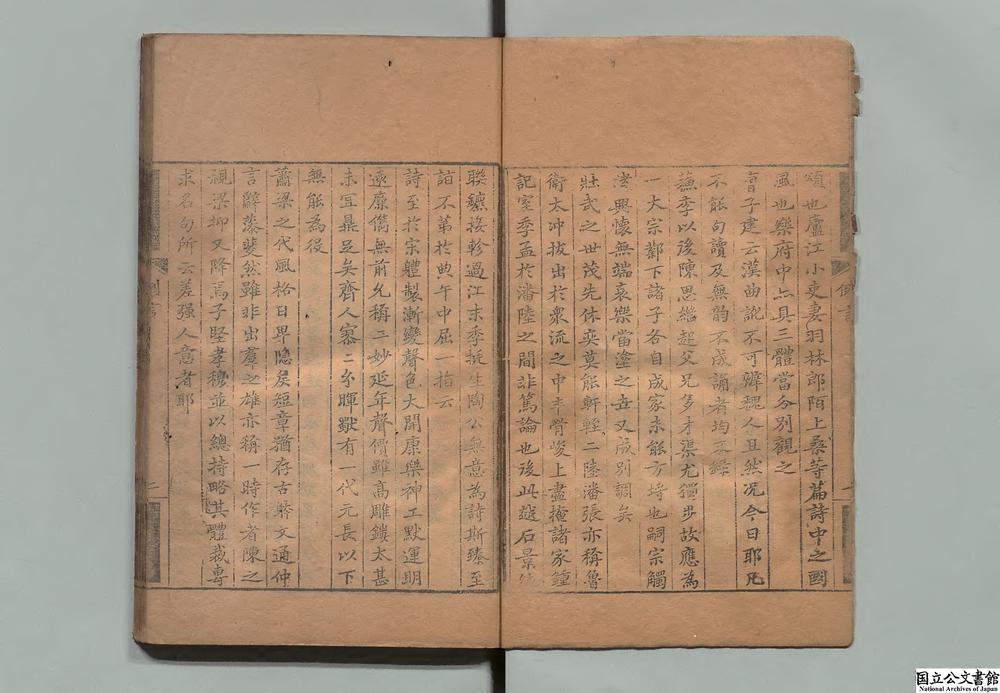 頌也廬江小吏妻羽林郎陌上桑等篇詩中之國
風也樂府中亦具三體當分別觀之
曹子建云漢曲訛不可辨魏人且然况今日耶凡
不能句讀及無韵不成誦者均不錄
蘇李以後陳思繼起父兄多才渠尤獨步故應為
一大宗鄴下諸子各自成家未能方埒也嗣宗觸
緒興懷無端哀樂當塗之世又成別調矣
壯武之世茂先休奕莫能軒輊二陸潘張亦稱魯
衛太冲拔出於衆流之中丰骨峻上盡掩諸家鍾
記室季孟於潘陸之間非篤論也後此越石景純
聯鑣接軫過江末季挺生陶公無意為詩斯臻至
詣不第於典午中屈一指云
詩至於宋體製漸變聲色大開康樂神工默運明
遠廉儁無前允稱二妙延年聲價雖高雕鏤太甚
未宜鼎足矣齊人寥二玄暉獨有一代元長以下
無能為役
蕭梁之代風格日卑隱矦短章猶存古躰文通仲
言辭藻斐然雖非出羣之雄亦稱一時作者陳之
視梁抑又降焉子堅孝穆並以總持略其體裁專
求名句所云差强人意者耶
例言
二
国立公文書館
National Archives of Japan